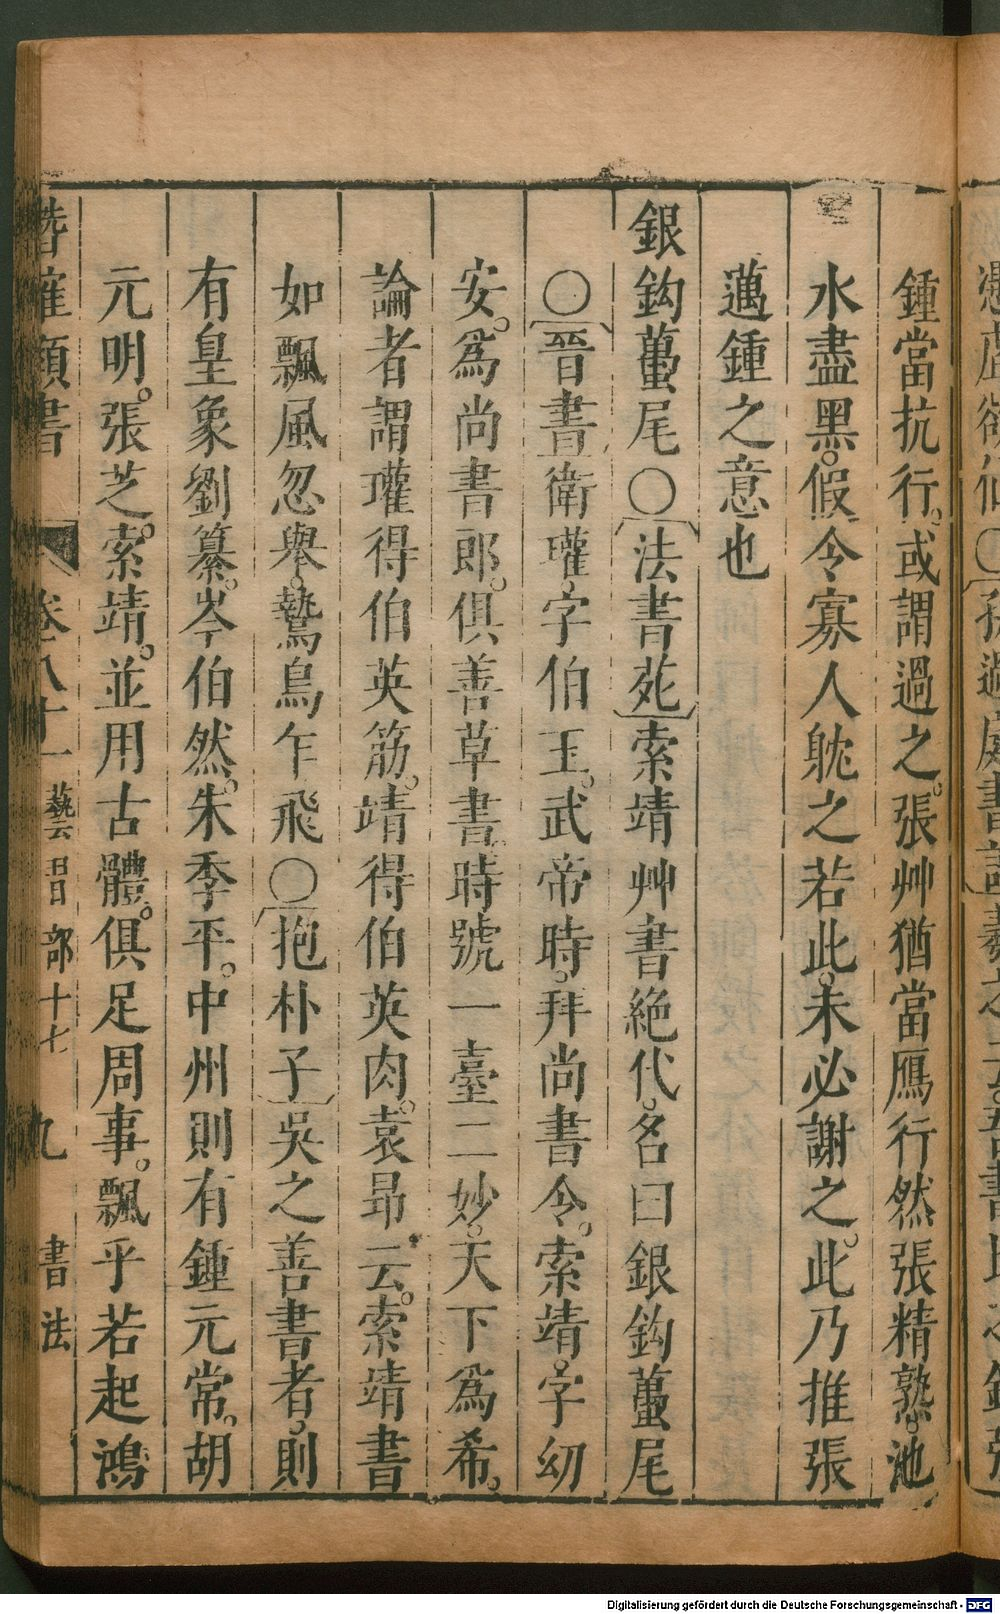 鍾當抗行。或謂過之。張艸猶當鴈行然張精熟。池
水盡黑。假令寡人躭之若此。未必謝之。此乃推張
邁鍾之意也
銀鈎蠆尾○〔法書苑〕索靖艸書絶代。名曰銀鈎蠆尾
○〔晉書〕衛瓘。字伯玉。武帝時。拜尚書令。索靖。字幼
安。爲尚書郎。俱善草書。時號一臺二妙。天下爲希。
論者謂瓘得伯英筋。靖得伯英肉。袁昂云。索靖書
如飄風忽舉。鷙鳥乍飛○〔抱朴子〕吳之善書者。則
有皇象劉纂。岑伯然。朱季平。中州則有鍾元常。胡
元明。張芝。索靖。並用古體。俱足周事。飄乎若起鴻
潛確類書 卷八十一 藝習部十七 九 書法
Digitalisierung gefördert durch die Deutsche Forschungsgemeinschaft - DFG